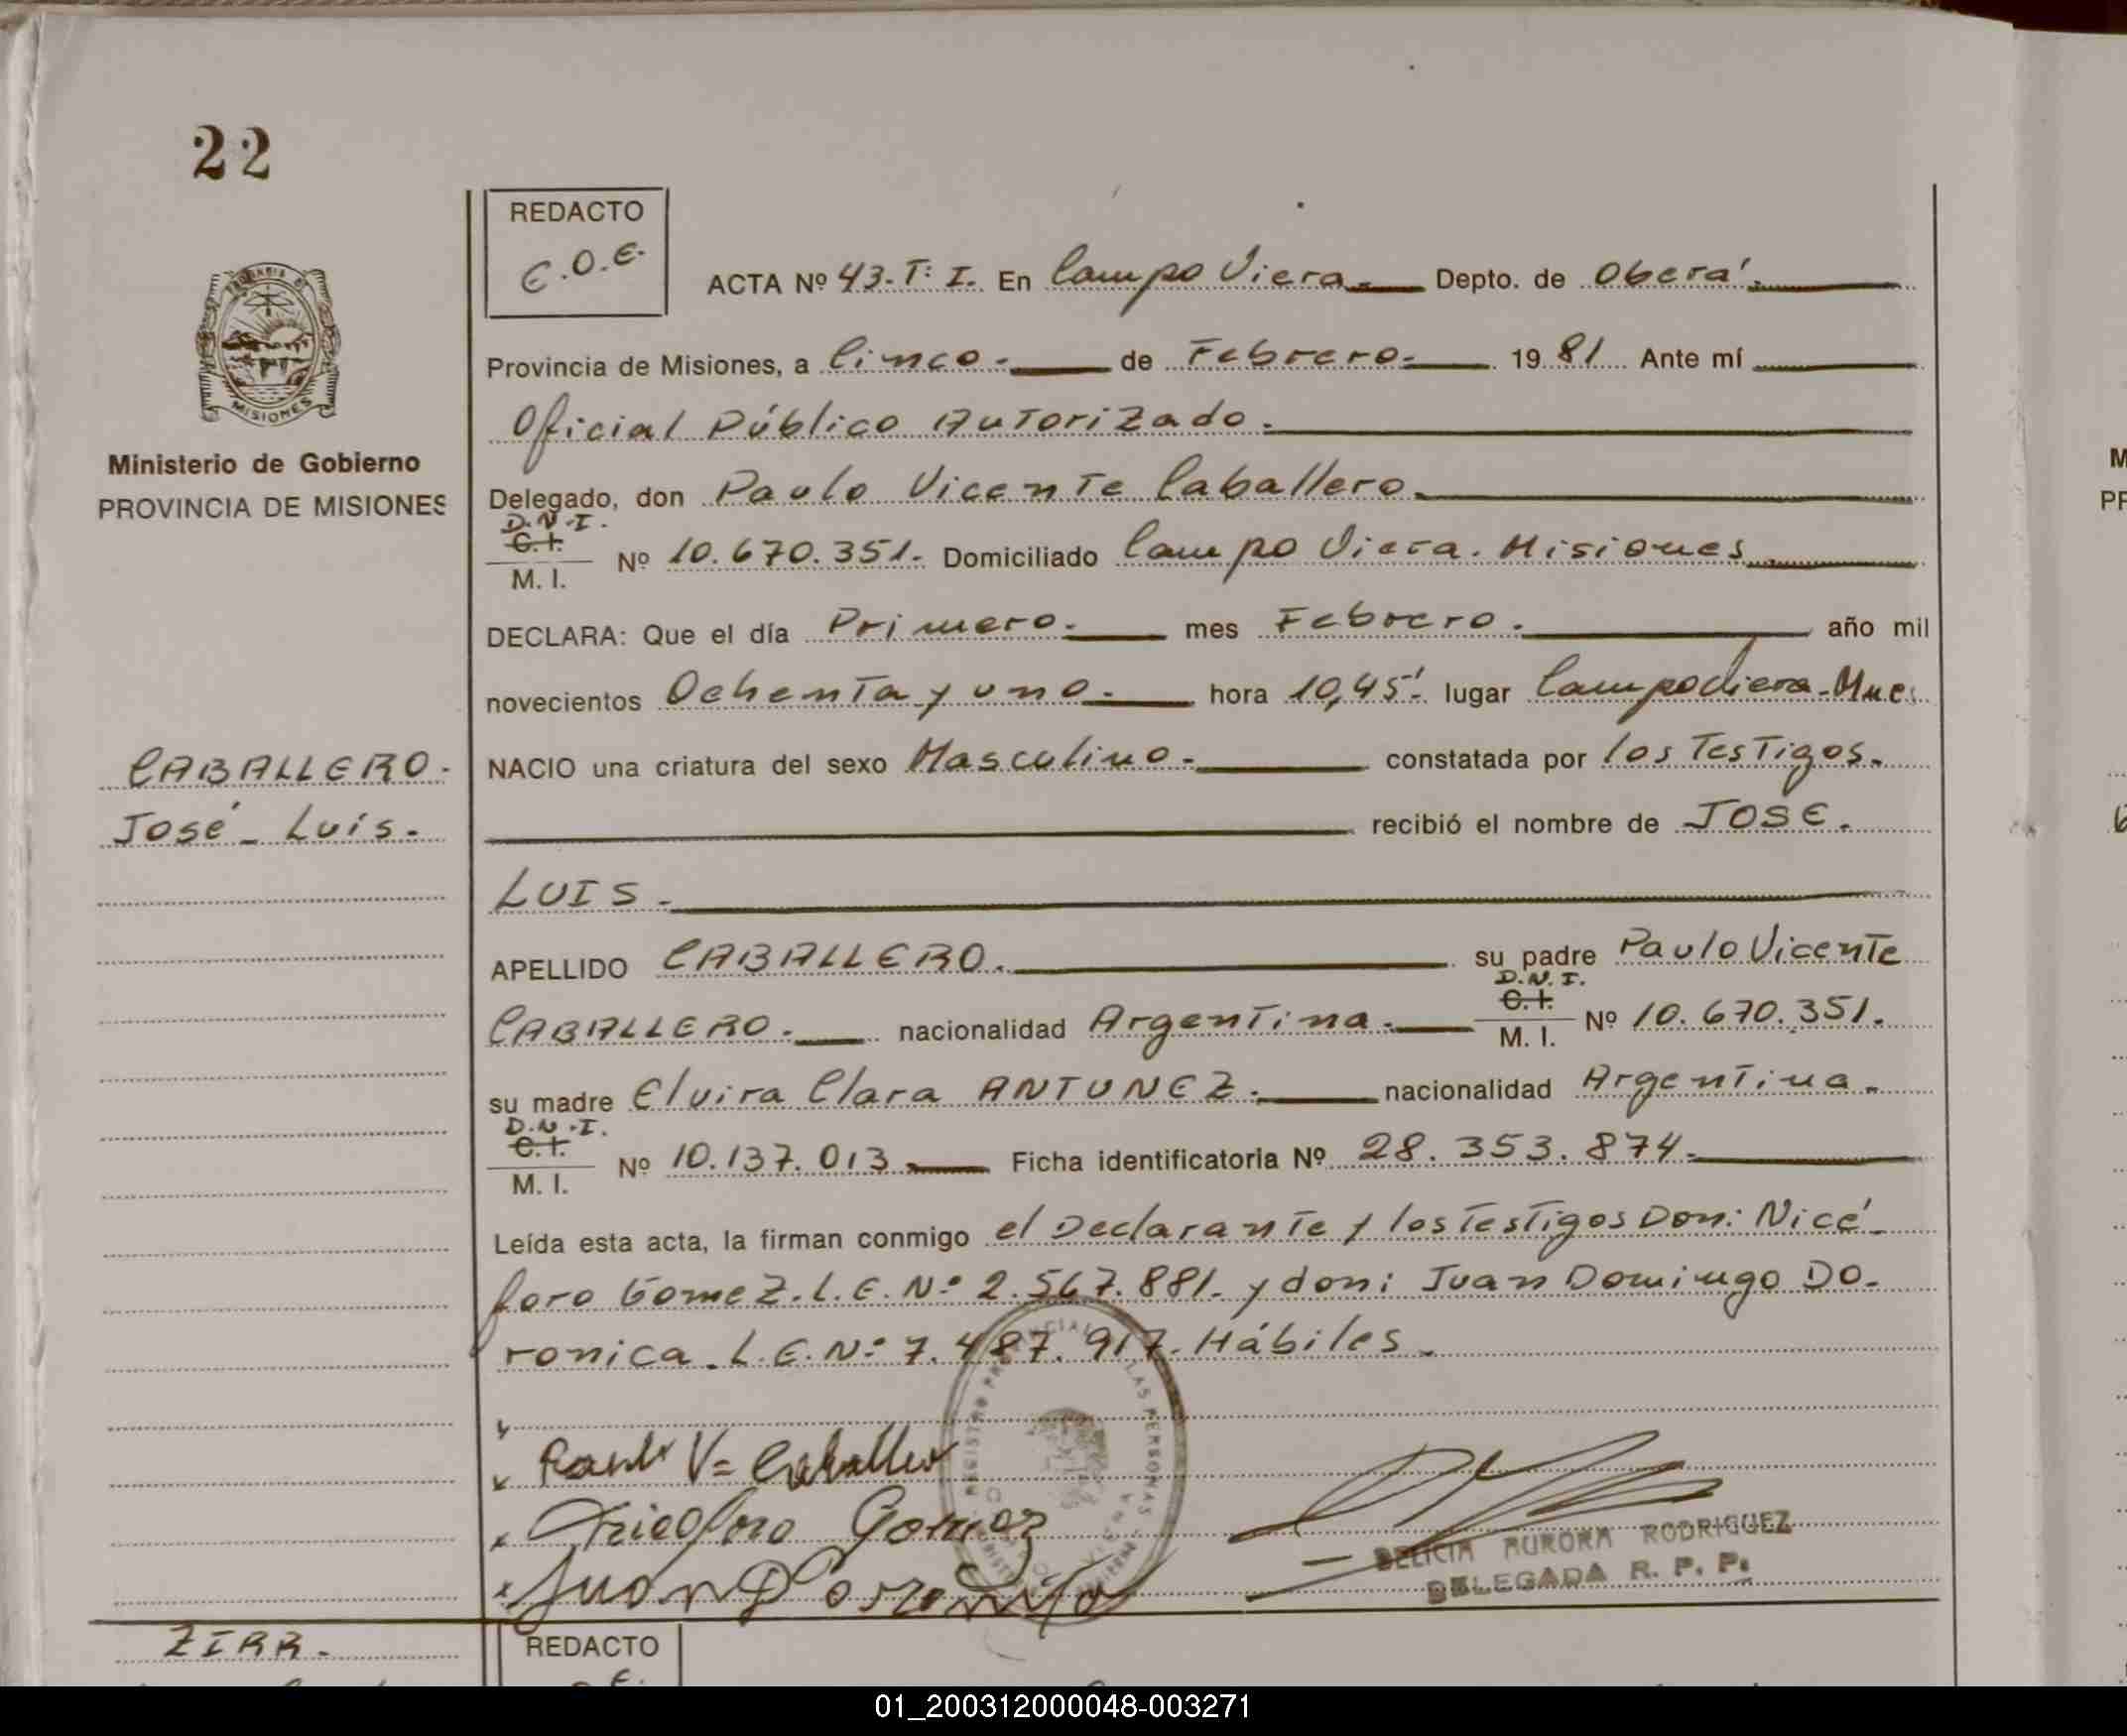 22
REDACTO
C.O.E.
ACTA Nº 43.T: I. En Campo Viera. Depto. de Oberá.
Provincia de Misiones, a Cinco. de Febrero. 1981 Ante mí
Oficial Público Autorizado.
Delegado, don Paulo Vicente Caballero.
D.N.I.
C.I.
M. I. Nº 10.670.351. Domiciliado Campo Viera. Misiones
DECLARA: Que el día Primero. mes Febrero. año mil
novecientos Ochenta y uno. hora 10,45'. lugar Campo Viera. Mnes.
NACIO una criatura del sexo Masculino. constatada por los Testigos.
recibió el nombre de JOSE.
LUIS.
APELLIDO CABALLERO. su padre Paulo Vicente
CABALLERO. nacionalidad Argentina. D.N.I. C.I. M. I. Nº 10.670.351.
su madre Elvira Clara ANTUNEZ. nacionalidad Argentina.
D.N.I.
C.I.
M. I. Nº 10.137.013. Ficha identificatoria Nº 28.353.874.
Leída esta acta, la firman conmigo el Declarante y los Testigos Don: Nicé-
foro Gomez. L.E. Nº 2.567.881. y don: Juan Domingo DO-
ronica. L.E. Nº 7.487.917. Hábiles.
Paulo V= Caballero
Niceforo Gomez
Juan D Doronica
REGISTRO PROVINCIAL LAS PERSONAS
DELICIA AURORA RODRIGUEZ
DELEGADA R. P. P.
MISIONES
Ministerio de Gobierno
PROVINCIA DE MISIONES
CABALLERO.
José Luis.
ZIRR.
REDACTO
01_200312000048-003271